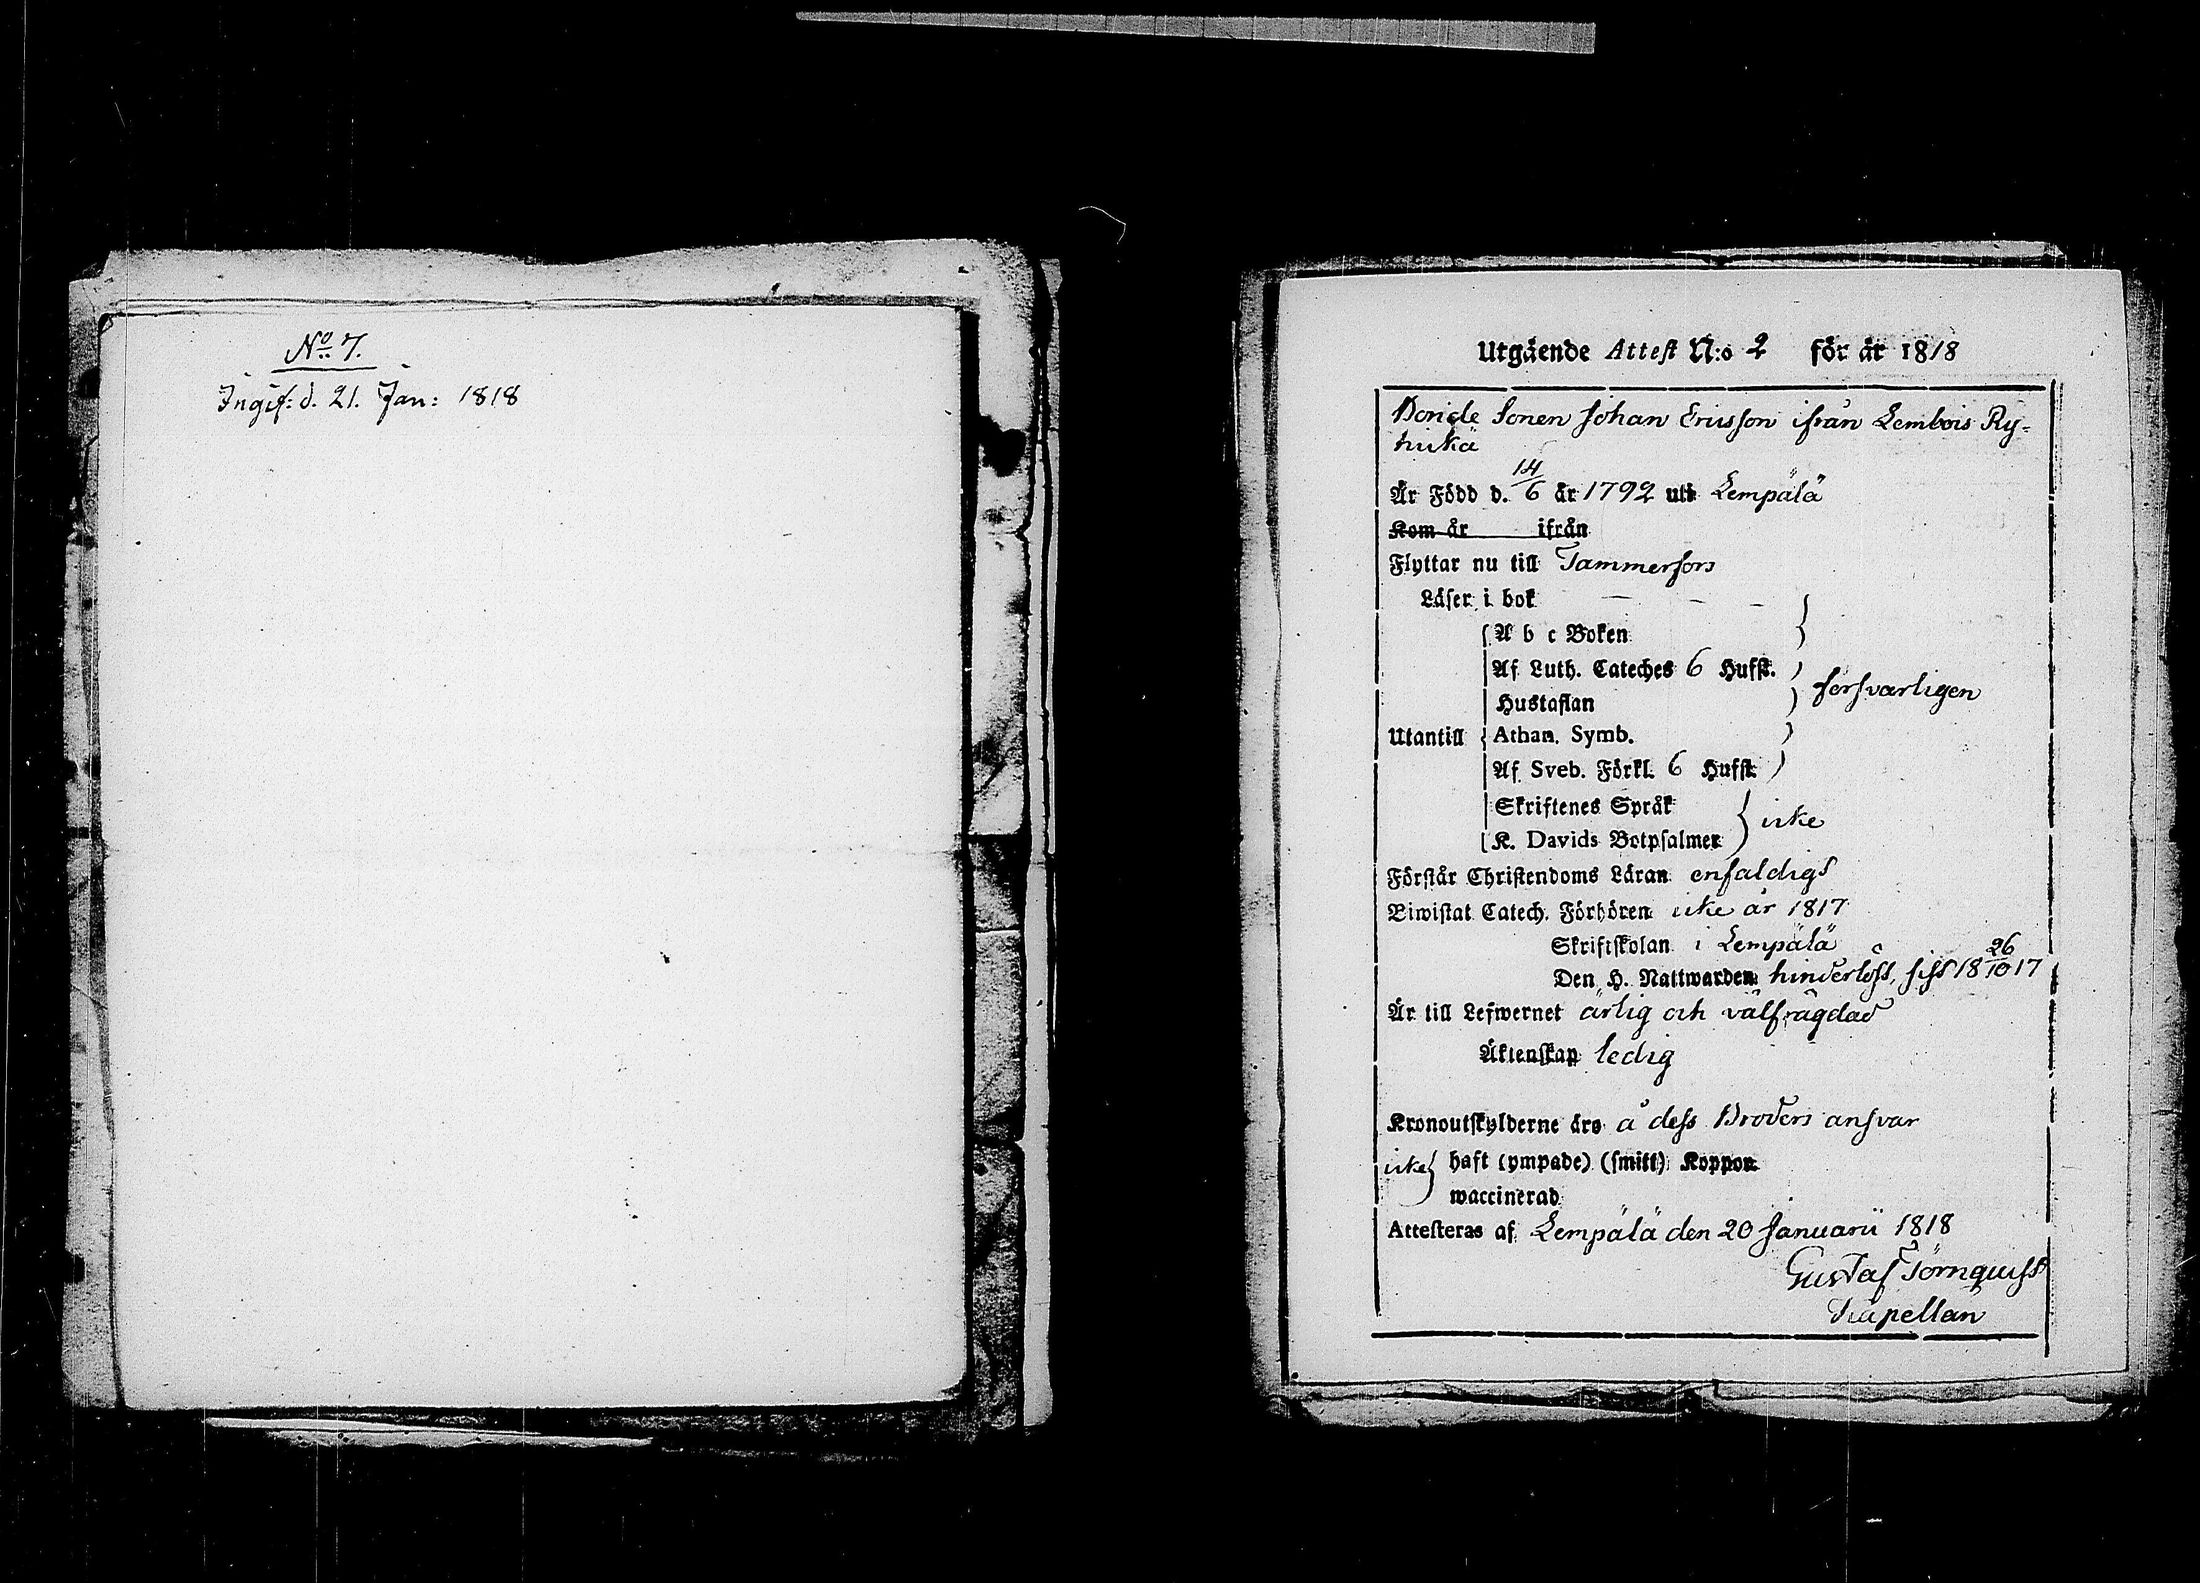 No 7.
Ingif: d. 21. Jan: 1818
Utgående Attest N:o 2 för år 1818
Bonde Sonen Johan Ericsson ifrån Lembois Ry-
hickä
Är Född d. 14/6 år 1792 uti Lempälä
Kom år ifrån
Flyttar nu till Tammerfors
Läser i bok
A b c Boken
Af Luth. Cateches 6 Hufst.
försvarligen
Hustaflan
Utantill Athan. Symb.
Af Sveb. Förkl. 6 Hufst.
Skriftenes Språk
icke
K. Davids Botpsalmer
Förstår Christendoms Läran enfaldigt
Biwistat Catech. Förhören icke år 1817
Skriftskolan i Lempälä
Den H. Nattwarden hinderlöst, sist 18 26/10 17
Är till Lefwernet ärlig och välfrägdad
Äktenskap ledig
Kronoutskylderne äro å dess Broders ansvar
icke haft (ympade) (smitt) Koppor
waccinerad
Attesteras af Lempälä den 20 Januarii 1818
Gustaf Törnquist
Kapellan